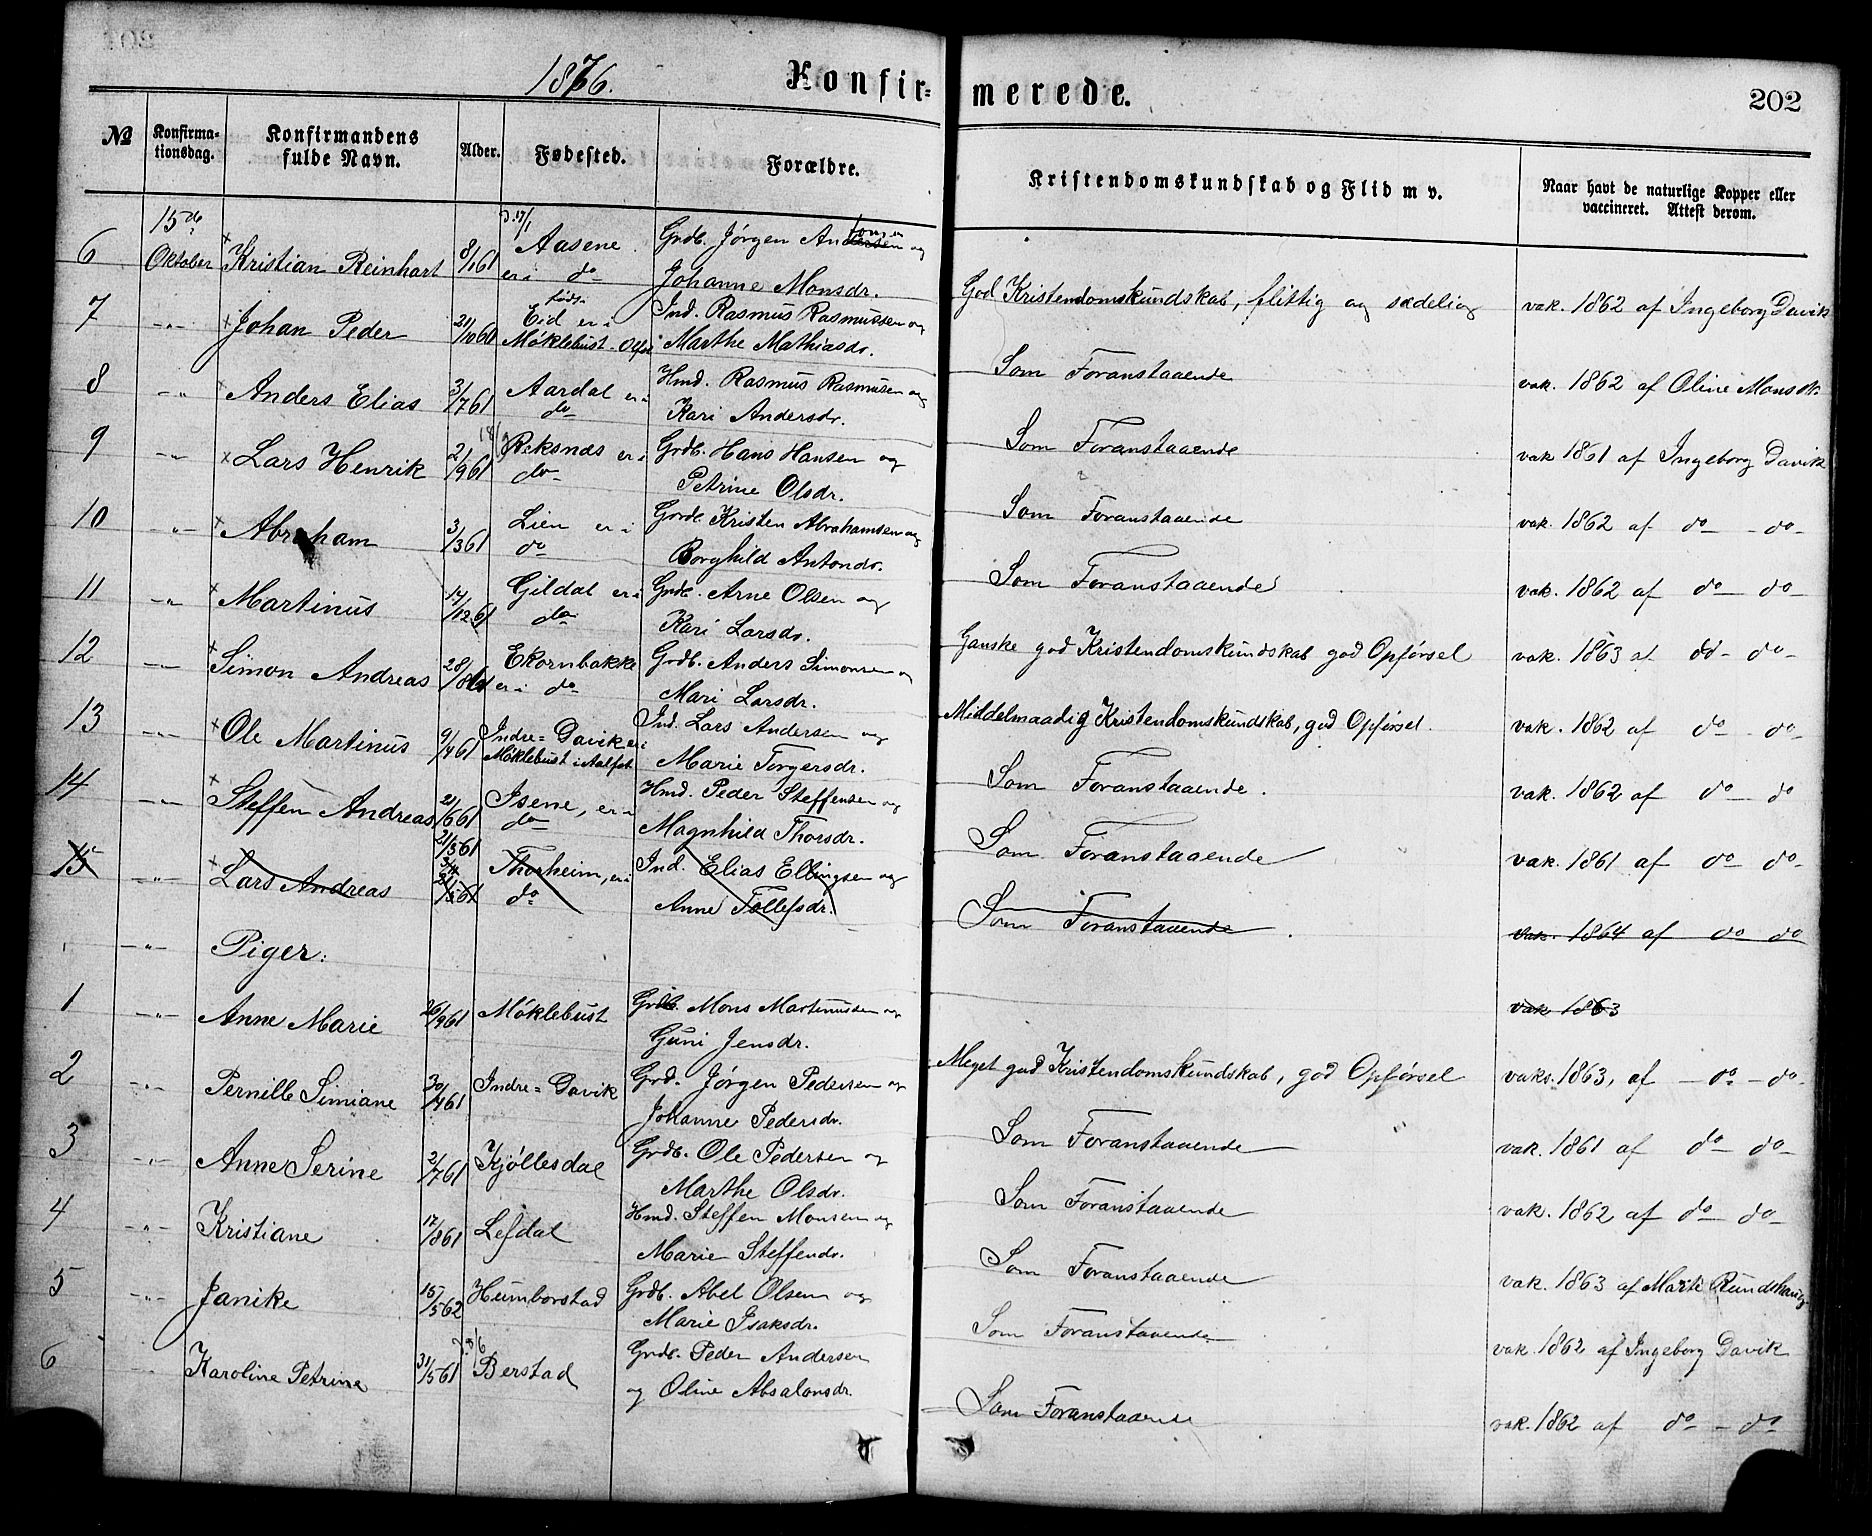 1876.
Konfirmerede.
202
№
Konfirmationsdag.
Konfirmandens fulde Navn.
Alder.
Fødested.
Forældre.
Kristendomskundskab og Flid m v.
Naar havt de naturlige Kopper eller vaccineret. Attest derom.
6 15de Oktober Kristian Reinhart 8/1 61 d. 17/1 Aasene er i do Grdb. Jørgen Andersen og Johanne Monsdr. God Kristendomskundskab, flittig og sædelig vak. 1862 af Ingeborg Davik
7 -"- Johan Peder 21/10 60 født Eid er i Møklebust Ind. Rasmus Rasmussen og Marthe Mathiasdr. Som Foranstaaende vak. 1862 af Oline Monsdr.
8 -"- Anders Elias 3/7 61 Aardal er i do Hmd. Rasmus Rasmusen og Kari Andersdr. Som Foranstaaende vak 1861 af Ingeborg Davik
9 -"- Lars Henrik 2/9 61 Reksnæs er i do Grdb. Hans Hansen og Petrine Olsdr. Som Foranstaaende vak. 1862 af do - do -
10 -"- Abraham 3/3 61 Lien er i do Grdb. Kristen Abrahamsen og Borghild Antondr. Som Foranstaaende vak. 1862 af do do -
11 -"- Martinus 14/12 61 Gildal er i do Grdb. Arne Olsen og Kari Larsdr. Ganske god Kristendomskundskab god Opførsel vak. 1863 af do - do -
12 -"- Simon Andreas 28/8 61 Ekornbakke er i do Grdb. Anders Simonsen og Mari Larsdr. Middelmaadig Kristendomskundskab, god Opførsel. vak. 1862 af do - do -
13 -"- Ole Martinus 9/4 61 Indre=Davik er i Møklebust i Aalfot Ind. Lars Andersen og Marie Torgersdr. Som Foranstaaende. vak. 1862 af do - do
14 -"- Steffen Andreas 2/6 61 Isene, er i do Hmd. Peder Steffensen og Magnhild Thorsdr. Som Foranstaaende vak. 1861 af do do -
15 -"- Lars Andreas 21/5 61 Thorheim, er i do Ind. Elias Ellingsen og Anne Tollefsdr. Som Foranstaaende. vak. 1864 af do do
-"- Piger:
vak 1863
1 -"- Anne Marie 26/9 61 Møklebust Grdb. Mons Martinussen og Guni Jensdr. Meget god Kristendomskundskab, god Opførsel vaks. 1863, af - do - do -
2 -"- Pernille Simiane 30/4 61 Indre=Davik Grd. Jørgen Pedersen og Johanne Pedersdr. Som Foranstaaende vak. 1861 af do - do -
3 -"- Anne Serine 2/7 61 Kjøllesdal Grdb. Ole Pedersen og Marthe Olsdr. Som Foranstaaende vak. 1862 af do - do -
4 -"- Kristiane 17/8 61 Lefdal Hmd. Steffen Monsen og Marie Steffendr. Som Foranstaaende vak. 1863 af Marte Rundhaug
5 -"- Janike 15/5 62 Humborstad Grdb. Abel Olsen og Marie Isaksdr. Som Foranstaaende vak. 1862 af Ingeborg Davik
6 -"- Karoline Petrine 31/5 61 Berstad Grdb. Peder Andersen og Oline Absalonsdr. Som Foranstaaende vak. 1862 af do - do